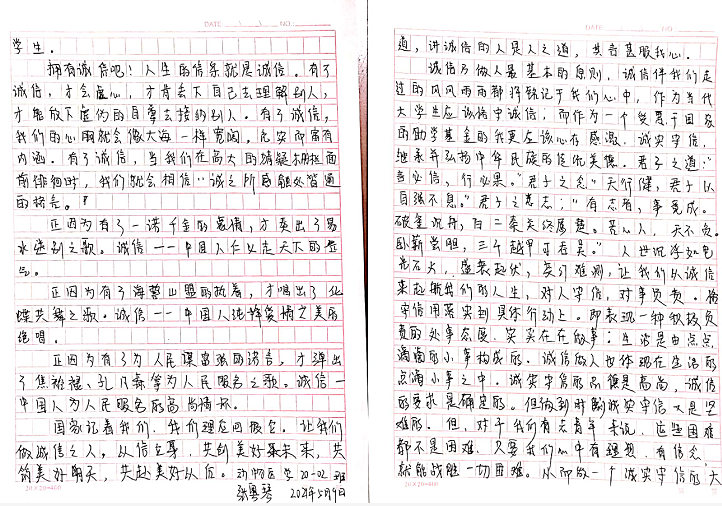 DATE \ \ NO:
学生.
拥有诚信吧!人生的信条就是诚信。有了
诚信,才会虚心,才肯去下自己去理解别人,
才能放下虚伪的自尊去接纳别人。有了诚信,
我们的心胸就会像大海一样宽阔,充实而富有
内涵。有了诚信,当我们在高大的 栅栏面
前徘徊时,我们就会相信:"诚之所感触处皆通
的格言。"
正因为有了一诺千金的豪情,才奏出了易
水送别之歌。诚信——中国人仁义走天下的豪
气。
正因为有了海誓山盟的执着,才唱出了化
蝶共舞之歌。诚信——中国人纯粹爱情之美丽
绝唱。
正因为有了为人民谋富强的诺言,才弹出
了焦裕禄、孔繁森等为人民服务之歌。诚信一
中国人为人民服务的高尚情怀。
国家记着我们,我们理应回报它。让我们
做诚信之人,从信立身,共创美好未来,共
筑美好明天,共赴美好从伍。动物医学20-02班
张粤琴 2021年5月9日
20×20=400
DATE NO
道,讲诚信的人是人之道,共香甚服我心.
诚信乃做人最基本的原则,诚信伴我们走
过的风风雨雨都将铭记于我们心中,作为当代
大学生应该恪守诚信;而作为一个受惠于国家
的助学基金的我更应该心存感激,诚实守信,
继承并弘扬中华民族的优优美德。君子之道:"
言必信,行必果。"君子之志"天行健,君子以
自强不息。"君子之意志:"有志者,事竟成。
破釜沉舟,百二秦关终属楚。苦心人,天不负。
卧薪尝胆,三千越甲可吞吴。"人世沉浮如电
光石火,盛衰起伏,变幻难测,让我们从诚信
来起航我们的人生,对人守信,对事负责。将
守信用落实到具体行动上。即表现一种积极负
责的处事态度,实实在在做事;生活是由点点
滴滴的小事构成的。诚信做人也体现在生活的
点滴小事之中。诚实守信的品德是高尚,诚信
的要求是确定的。但做到时时诚实守信大是坚
难的。但,对于我们有志青年来说,这些困难
都不是困难,只要我们心中有理想,有信念,
就能战胜一切困难。从而做一个诚实守信的大
20×20=400